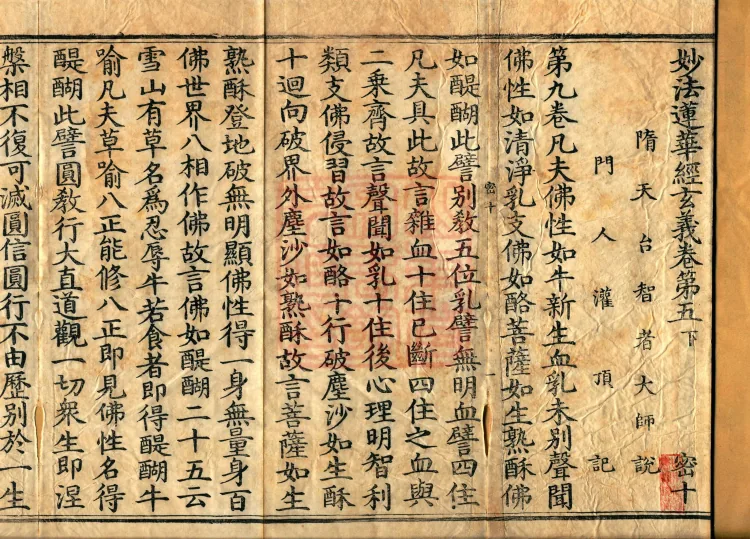 妙法蓮華經玄義卷第五下 密十
隋天台智者大師說
門人灌頂記
第九卷凡夫佛性如牛新生血乳未別聲聞
佛性如清淨乳支佛如酪菩薩如生熟酥佛
如醍醐此譬別教五位乳譬無明血譬四住
密十 一
凡夫具此故言雜血十住已斷四住之血與
二乘齊故言聲聞如乳十住後心理明智利
類支佛侵習故言如酪十行破塵沙如生酥
十迴向破界外塵沙如熟酥故言菩薩如生
熟酥登地破無明顯佛性得一身無量身百
佛世界八相作佛故言佛如醍醐二十五云
雪山有草名為忍辱牛若食者即得醍醐牛
喻凡夫草喻八正能修八正即見佛性名得
醍醐此譬圓教行大直道觀一切眾生即涅
槃相不復可滅圓信圓行不由歷別於一生